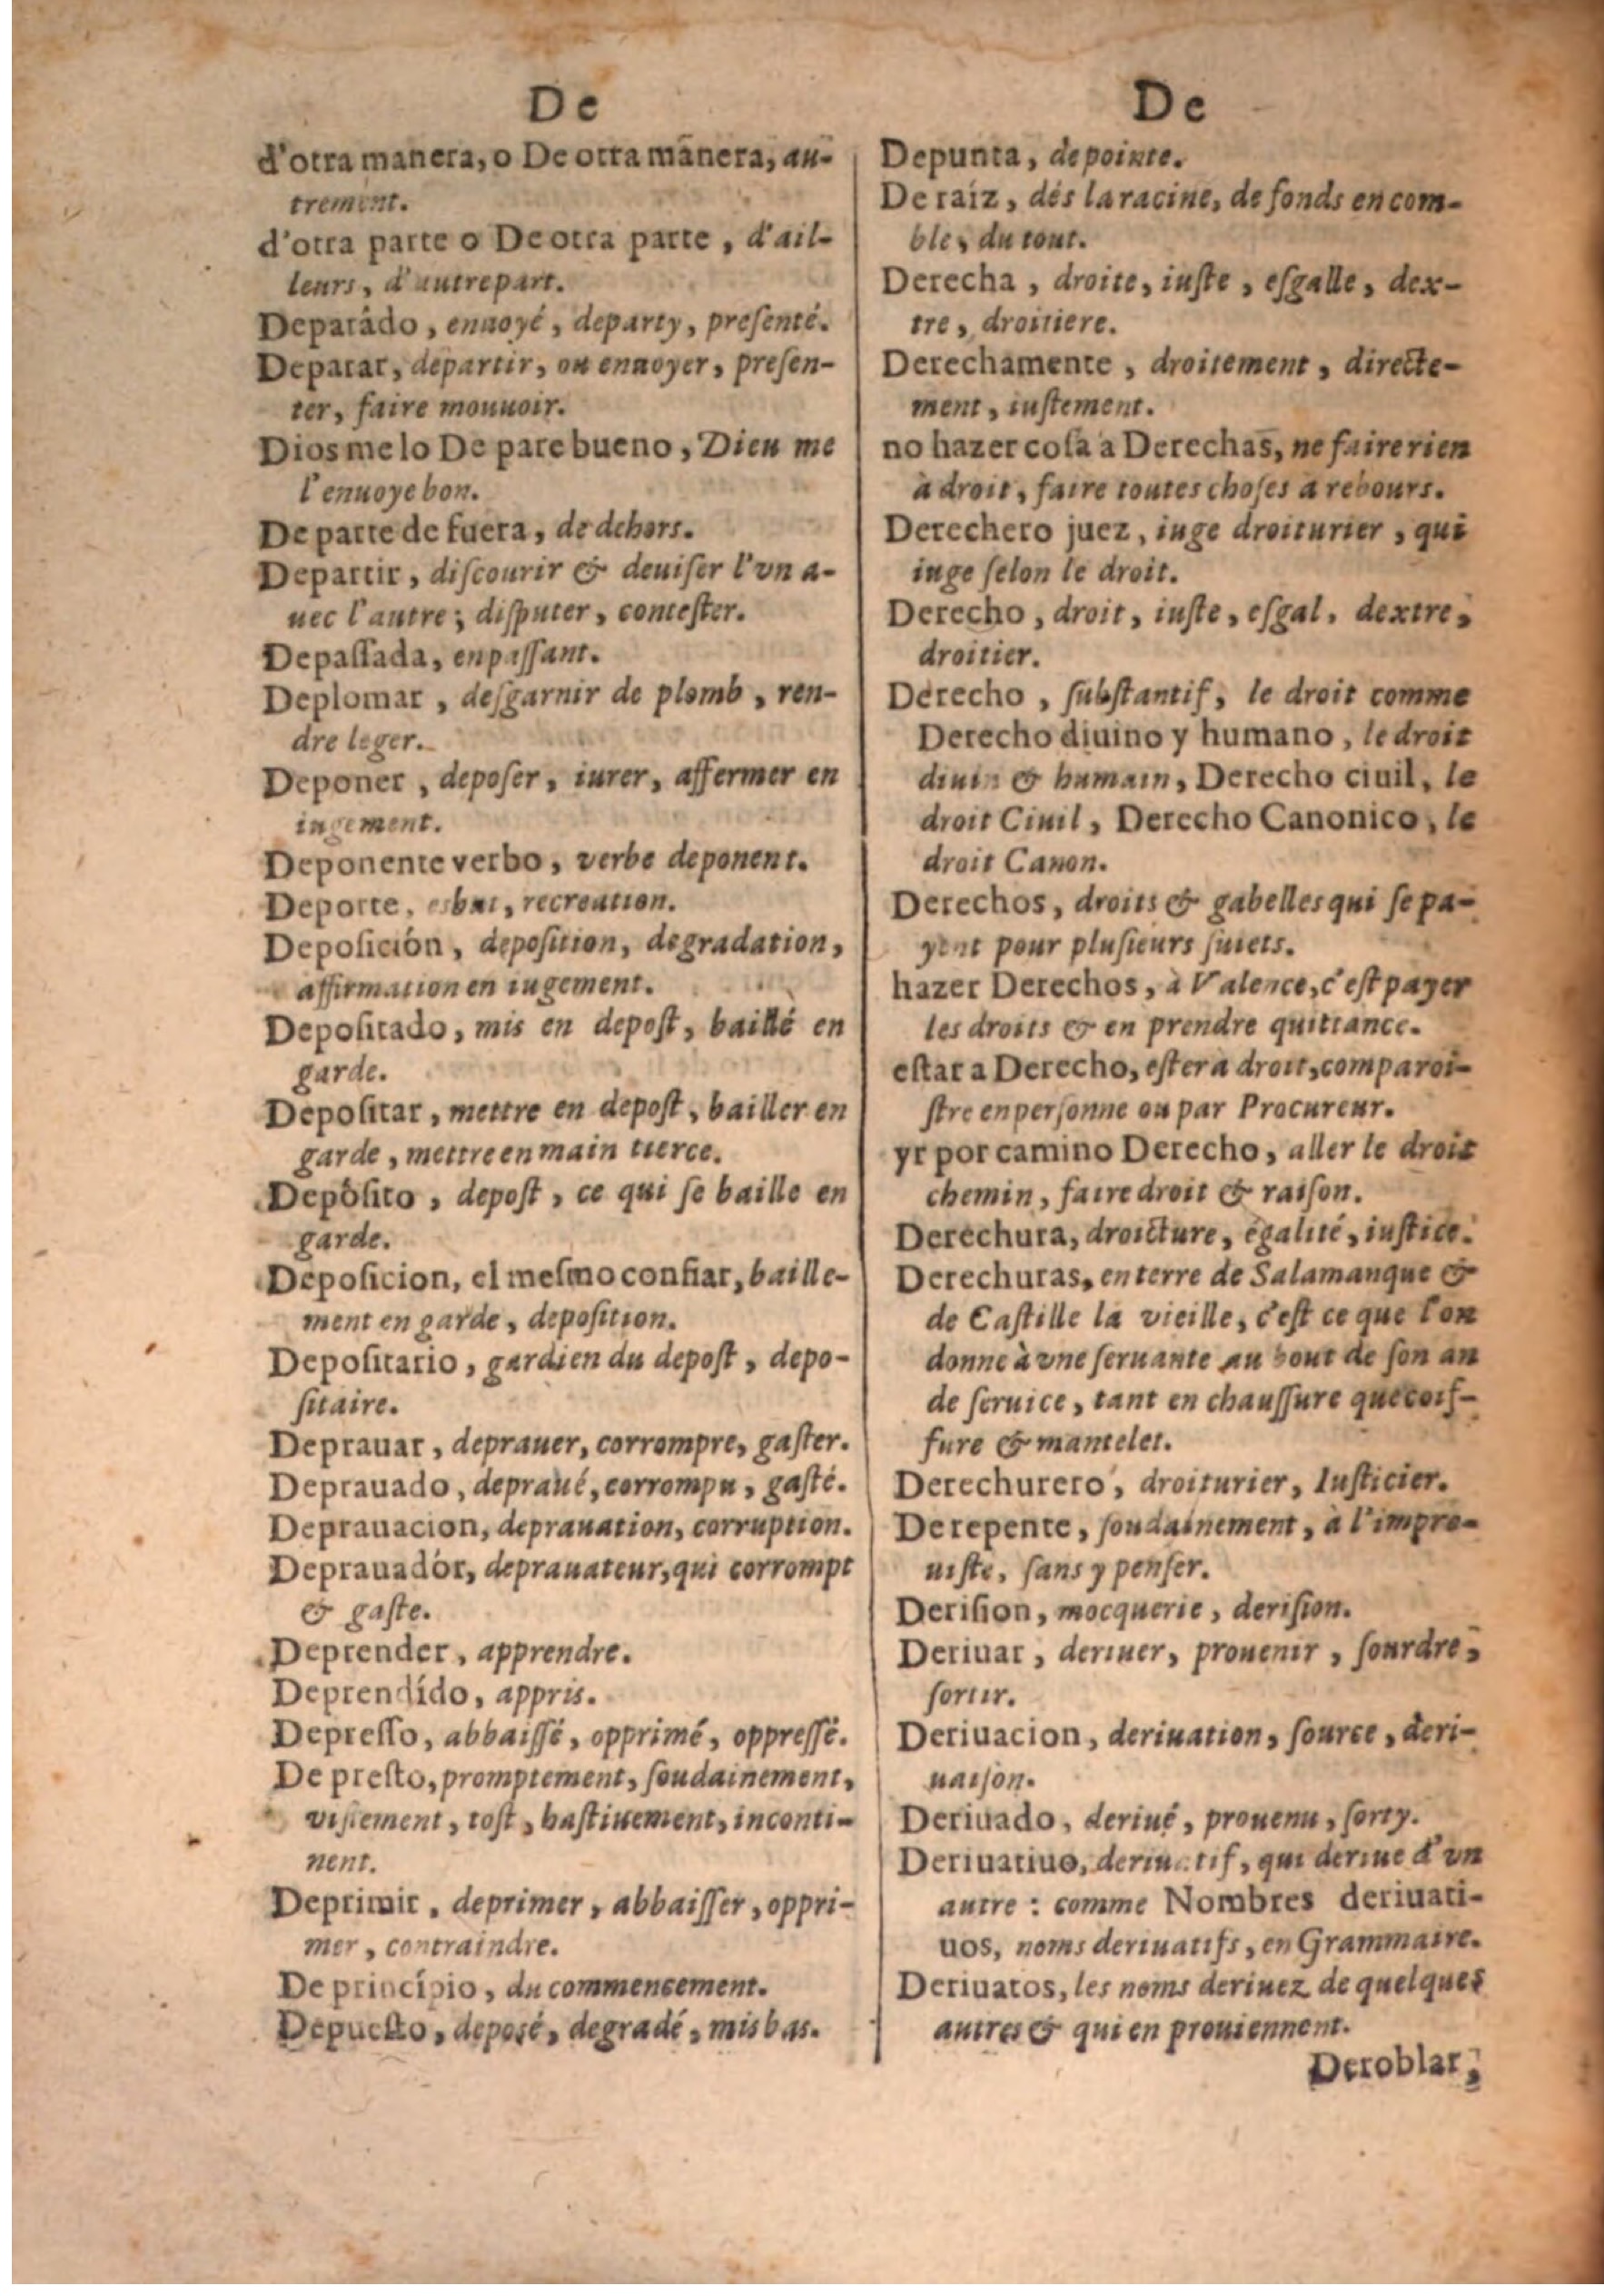 De
d'otra manera, o De otra manera, au-
trement.
d'otra parte o De otra parte, d'ail-
leurs, d'autre part.
Deparádo, enuoyé, departy, preſenté.
Deparar, départir, ou enuoyer, preſen-
ter, faire mouuoir.
Dios me lo De pare bueno, Dieu me
l'enuoye bon.
De parte de fuera, de dehors.
Departir, diſcourir & deuiſer l'vn a-
uec l'autre; diſputer, conteſter.
De paſſada, en paſſant.
Deplomar, deſgarnir de plomb, ren-
dre leger.
Deponer, depoſer, iurer, affermer en
iugement.
Deponente verbo, verbe deponent.
Deporte, esbat, recreation.
Depoſición, depoſition, degradation,
affirmation en iugement.
Depoſitado, mis en depoſt, baillé en
garde.
Depoſitar, mettre en depoſt, bailler en
garde, mettre en main tierce.
Depôſito, depoſt, ce qui ſe baille en
garde.
Depoſicion, el meſmo confiar, baille-
ment en garde, depoſition.
Depoſitario, gardien du depoſt, depo-
ſitaire.
Deprauar, deprauer, corrompre, gaſter.
Deprauado, depraué, corrompu, gaſté.
Deprauacion, deprauation, corruption.
Deprauadór, deprauateur, qui corrompt
& gaſte.
Deprender, apprendre.
Deprendído, appris.
Depreſſo, abbaiſſé, opprimé, oppreſſé.
De preſto, promptement, ſoudainement,
viſtement, toſt, haſtiuement, inconti-
nent.
Deprimir, deprimer, abbaiſſer, oppri-
mer, contraindre.
De princípio, du commencement.
Depueſto, depoſé, degradé, mis bas.
De
De punta, de pointe.
De raíz, dés la racine, de fonds en com-
ble, du tout.
Derecha, droite, iuſte, eſgalle, dex-
tre, droitiere.
Derechamente, droitement, directe-
ment, iuſtement.
no hazer coſa a Derechas, ne faire rien
à droit, faire toutes choſes à rebours.
Derechero juez, iuge droiturier, qui
iuge ſelon le droit.
Derecho, droit, iuſte, eſgal, dextre,
droitier.
Derecho, ſubſtantif, le droit comme
Derecho diuino y humano, le droit
diuin & humain, Derecho ciuil, le
droit Ciuil, Derecho Canonico, le
droit Canon.
Derechos, droits & gabelles qui ſe pa-
yent pour pluſieurs ſuiets.
hazer Derechos, à Valence, c'eſt payer
les droits & en prendre quittance.
eſtar a Derecho, eſter a droit, comparoi-
ſtre en perſonne ou par Procureur.
yr por camino Derecho, aller le droit
chemin, faire droit & raiſon.
Derechura, droicture, égalité, iuſtice.
Derechuras, en terre de Salamanque &
de Caſtille la vieille, c'eſt ce que l'on
donne à vne ſeruante au bout de ſon an
de ſeruice, tant en chauſſure que coif-
fure & mantelet.
Derechurero, droiturier, Iuſticier.
De repente, ſoudainement, à l'impro-
uiſte, ſans y penſer.
Deriſion, mocquerie, deriſion.
Deriuar, deriuer, prouenir, ſourdre,
ſortir.
Deriuacion, deriuation, ſource, deri-
uaiſon.
Deriuado, deriué, prouenu, ſorty.
Deriuatiuo, deriuatif, qui deriue d'vn
autre : comme Nombres deriuati-
uos, noms deriuatifs, en Grammaire.
Deriuatos, les noms deriuez de quelques
autres & qui en prouiennent.
Deroblar,